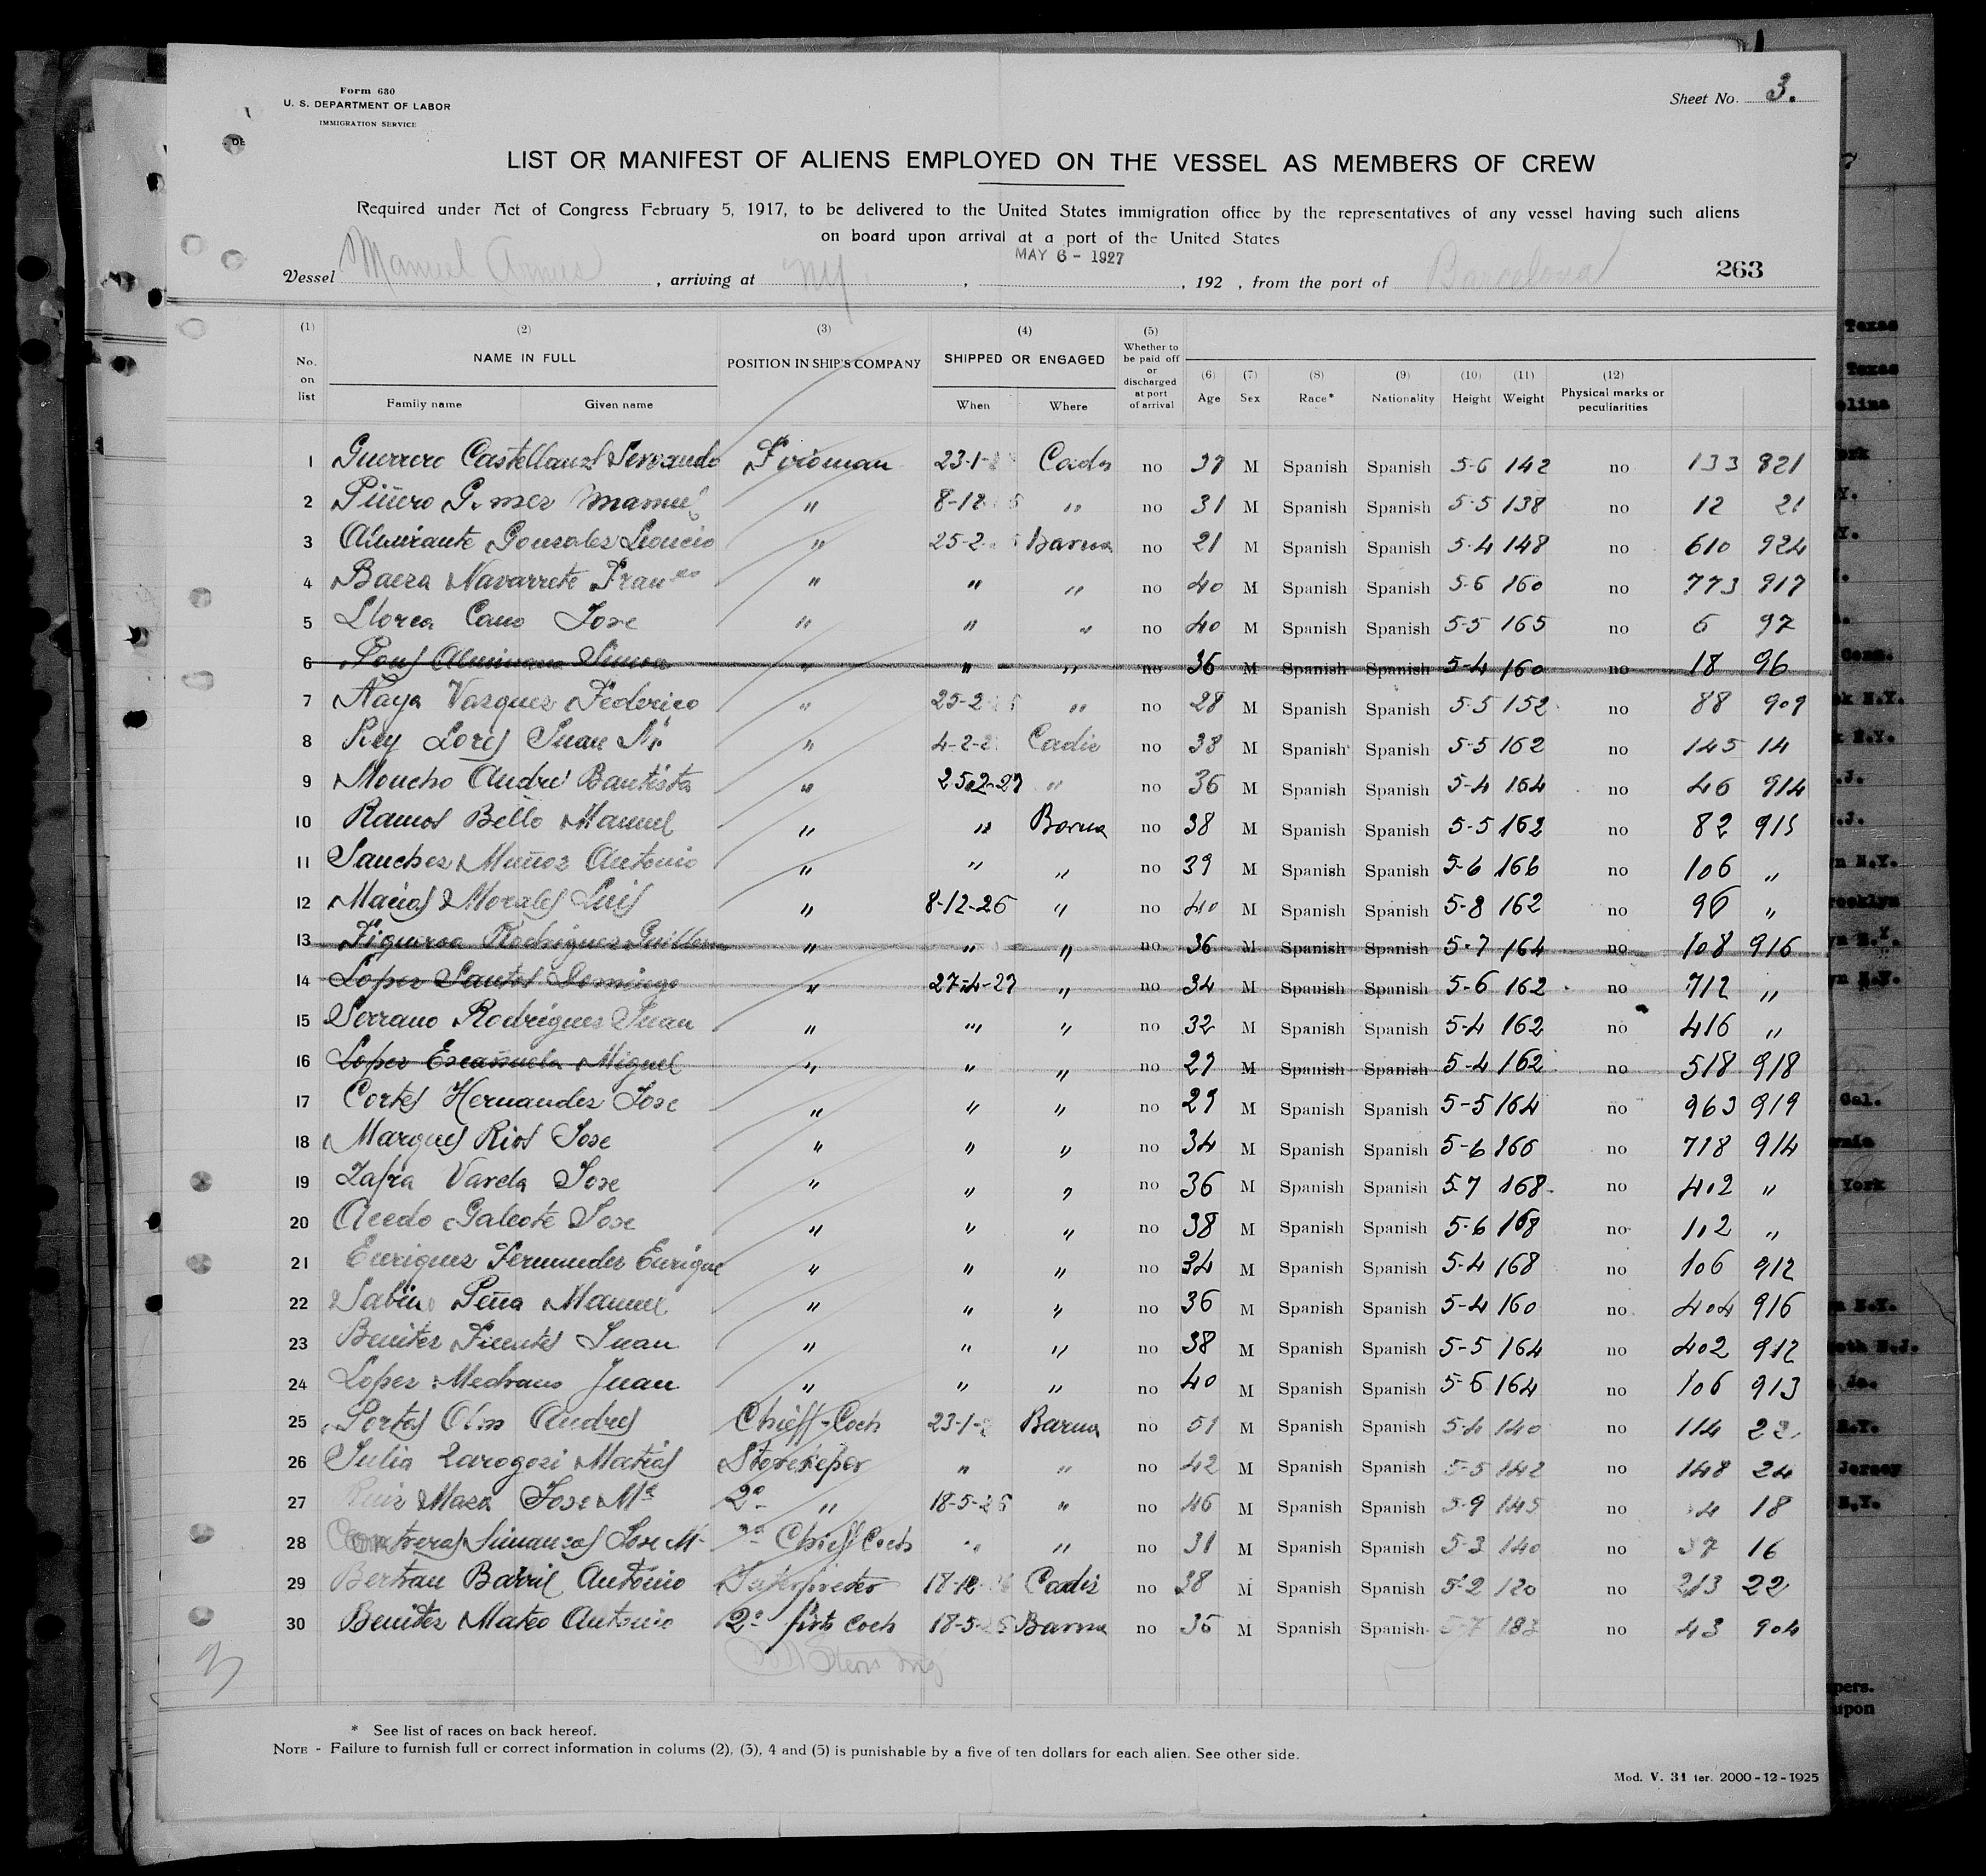 Form 630
U. S. DEPARTMENT OF LABOR
IMMIGRATION SERVICE
Sheet No. 3.
LIST OR MANIFEST OF ALIENS EMPLOYED ON THE VESSEL AS MEMBERS OF CREW
Required under Act of Congress February 5, 1917, to be delivered to the United States immigration office by the representatives of any vessel having such aliens
on board upon arrival at a port of the United States
MAY 6 - 1927
Vessel Manuel Arnus, arriving at NY, , 192 , from the port of Barcelona 263
(1) (2) (3) (4) (5)
No. on list NAME IN FULL POSITION IN SHIP'S COMPANY SHIPPED OR ENGAGED Whether to be paid off or discharged at port of arrival (6) Age (7) Sex (8) Race* (9) Nationality (10) Height (11) Weight (12) Physical marks or peculiarities
Family name Given name When Where
1 Guerrero Castellanos Servando Fireman 23-1- Cadis no 37 M Spanish Spanish 5-6 142 no 133 821
2 Piñero Gomez Manuel " 8-12 " no 31 M Spanish Spanish 5-5 138 no 12 21
3 Almirante Gonzales Leoncio " 25-2 Barna no 21 M Spanish Spanish 5-4 148 no 610 924
4 Baeza Navarrete Franco " " " no 40 M Spanish Spanish 5-6 160 no 773 917
5 Llorca Cano Jose " " " no 40 M Spanish Spanish 5-5 165 no 6 97
6 Pons Simon " " " no 36 M Spanish Spanish 5-4 160 no 18 96
7 Naya Vazquez Federico " 25-2 " no 28 M Spanish Spanish 5-5 152 no 88 909
8 Rey Juan " 4-2-2 Cadiz no 38 M Spanish Spanish 5-5 162 no 145 14
9 Moncho Andre Bautista " 25-2-27 " no 36 M Spanish Spanish 5-4 164 no 46 914
10 Ramos Bello Manuel " " Barna no 38 M Spanish Spanish 5-5 162 no 82 915
11 Sanchez Muñoz Antonio " " " no 39 M Spanish Spanish 5-6 166 no 106 "
12 Macias Morales Luis " 8-12-26 " no 40 M Spanish Spanish 5-8 162 no 96 "
13 Figueroa Rodriguez Guillermo " " " no 36 M Spanish Spanish 5-7 164 no 108 916
14 Lopez Santos Domingo " 27-4-27 " no 34 M Spanish Spanish 5-6 162 no 712 "
15 Serrano Rodriguez Juan " " " no 32 M Spanish Spanish 5-4 162 no 416 "
16 Lopez Escañuela Miguel " " " no 27 M Spanish Spanish 5-4 162 no 518 918
17 Cortes Hernandez Jose " " " no 29 M Spanish Spanish 5-5 164 no 963 919
18 Marques Rios Jose " " " no 34 M Spanish Spanish 5-6 166 no 718 914
19 Zafra Varela Jose " " " no 36 M Spanish Spanish 5-7 168 no 402 "
20 Acedo Galeote Jose " " " no 38 M Spanish Spanish 5-6 168 no 102 "
21 Enriquez Fernandez Enrique " " " no 34 M Spanish Spanish 5-4 168 no 106 912
22 Sabino Peña Manuel " " " no 36 M Spanish Spanish 5-4 160 no 404 916
23 Benitez Fuentes Juan " " " no 38 M Spanish Spanish 5-5 164 no 402 912
24 Lopez Medrano Juan " " " no 40 M Spanish Spanish 5-6 164 no 106 913
25 Portas Andres Chieff-Coch 23-1- Barna no 51 M Spanish Spanish 5-4 140 no 114 22
26 Julia Zarogozi Matias Storekeper " " no 42 M Spanish Spanish 5-5 142 no 148 24
27 Ruiz Maza Jose Mª 2º " 18-5-26 " no 46 M Spanish Spanish 5-9 145 no 4 18
28 Contreras Simancas Jose M- 2º Chieff Coch " " no 31 M Spanish Spanish 5-3 140 no 37 16
29 Bertran Barril Antonio Interpreter 18-12- Cadis no 38 M Spanish Spanish 5-2 120 no 213 22
30 Benitez Mateo Antonio 2º firts Coch 18-5-26 Barna no 36 M Spanish Spanish 5-7 183 no 43 904
* See list of races on back hereof.
NOTE - Failure to furnish full or correct information in colums (2), (3), 4 and (5) is punishable by a five of ten dollars for each alien. See other side.
Mod. V. 31 ter. 2000-12-1925